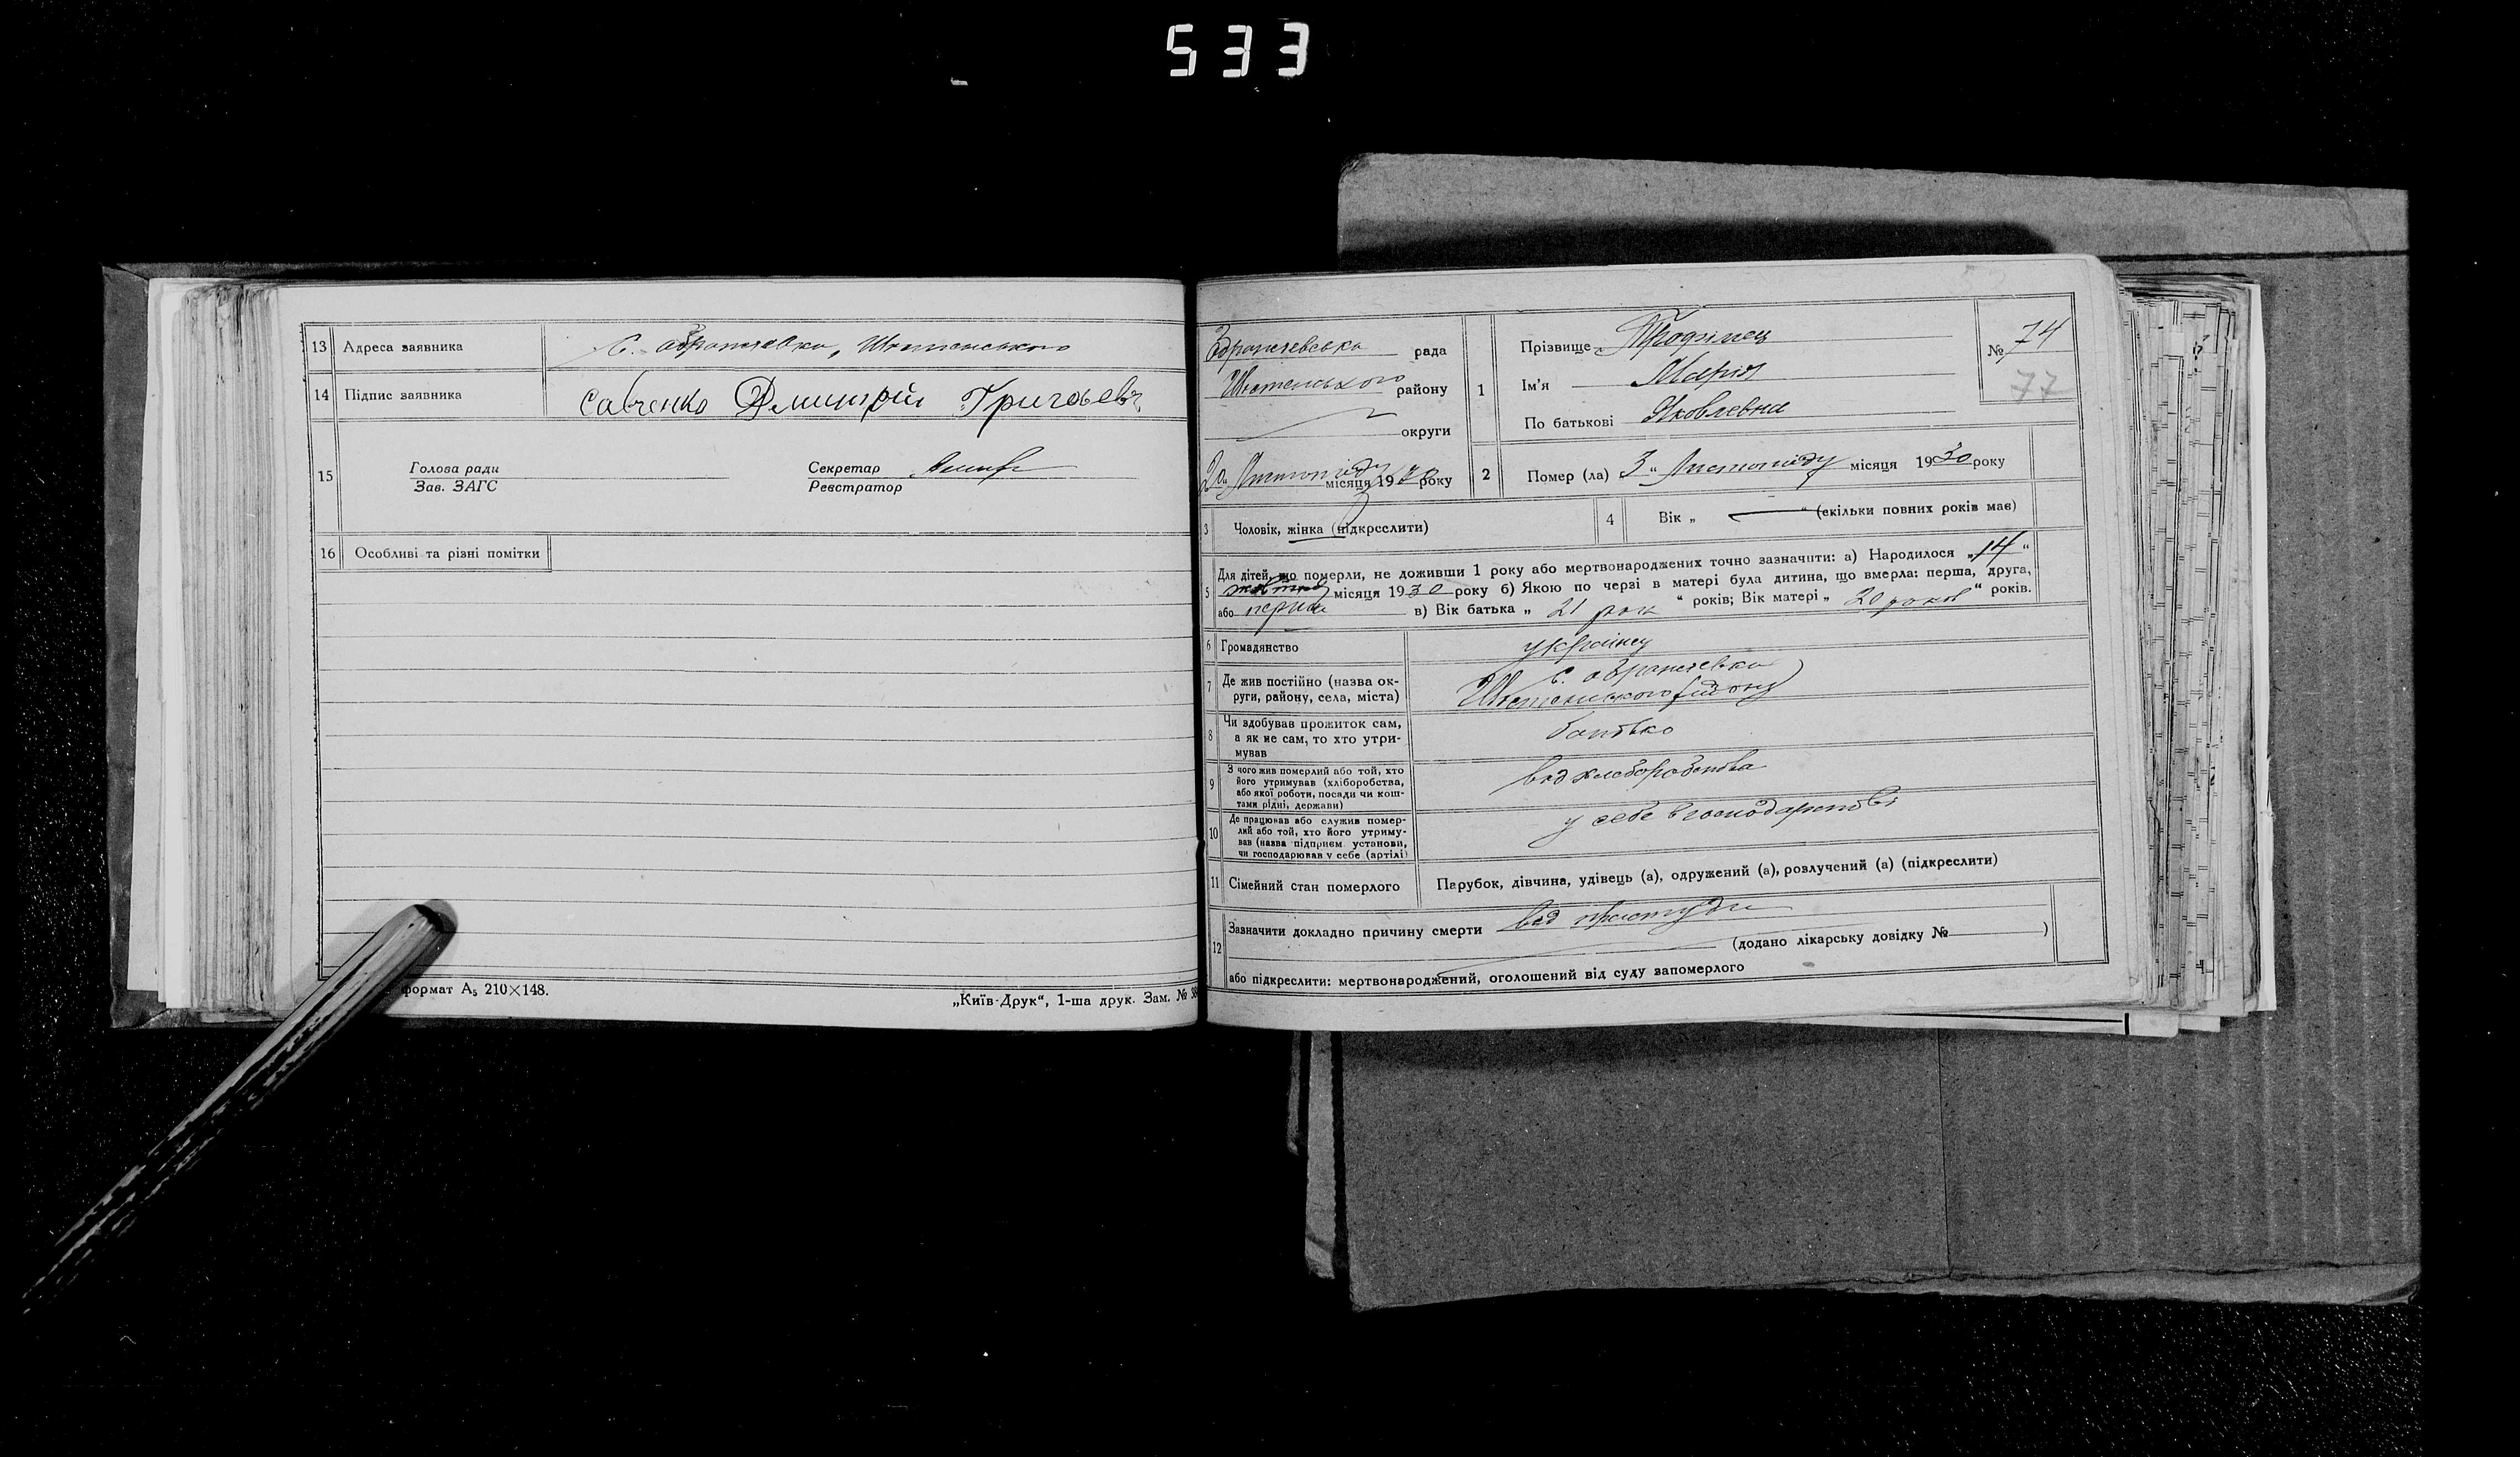 533
13 Адреса заявника С.
14 Підпис заявника Савченко Дмитрій Григорьевч
15 Голова ради Секретар
Зав. ЗАГС Реєстратор
16 Особливі та різні помітки
формат А5 210×148.
„Київ-Друк“, 1-ша друк. Зам. №
рада
району
округи
місяця 19 року
1 Прізвище
Ім'я Марія
По батькові Яковлевна
№ 74
77
2 Помер (ла) 3 „ Листопаду місяця 1930 року
3 Чоловік, жінка (підкреслити)
4 Вік „ “ (скільки повних років має)
5 Для дітей, що померли, не доживши 1 року або мертвонароджених точно зазначити: а) Народилося „14“
місяця 1930 року б) Якою по черзі в матері була дитина, що вмерла: перша, друга,
або перша в) Вік батька „ 21 рок “ років; Вік матері „ 20 роков “ років.
6 Громадянство українец
7 Де жив постійно (назва округи, району, села, міста) С.
району
8 Чи здобував прожиток сам,
а як не сам, то хто утри-
мував батько
9 З чого жив померлий або той, хто
його утримував (хліборобства,
або якої роботи, посади чи кош-
тами рідні, держави) вад хлеборобства
10 Де працював або служив помер-
лий або той, хто його утриму-
вав (назва підприєм. установи,
чи господарював у себе (артілі) у себе в господарстві
11 Сімейний стан померлого Парубок, дівчина, удівець (а), одружений (а), розлучений (а) (підкреслити)
12 Зазначити докладно причину смерти вад простуди
(додано лікарську довідку № )
або підкреслити: мертвонароджений, оголошений від суду запомерлого